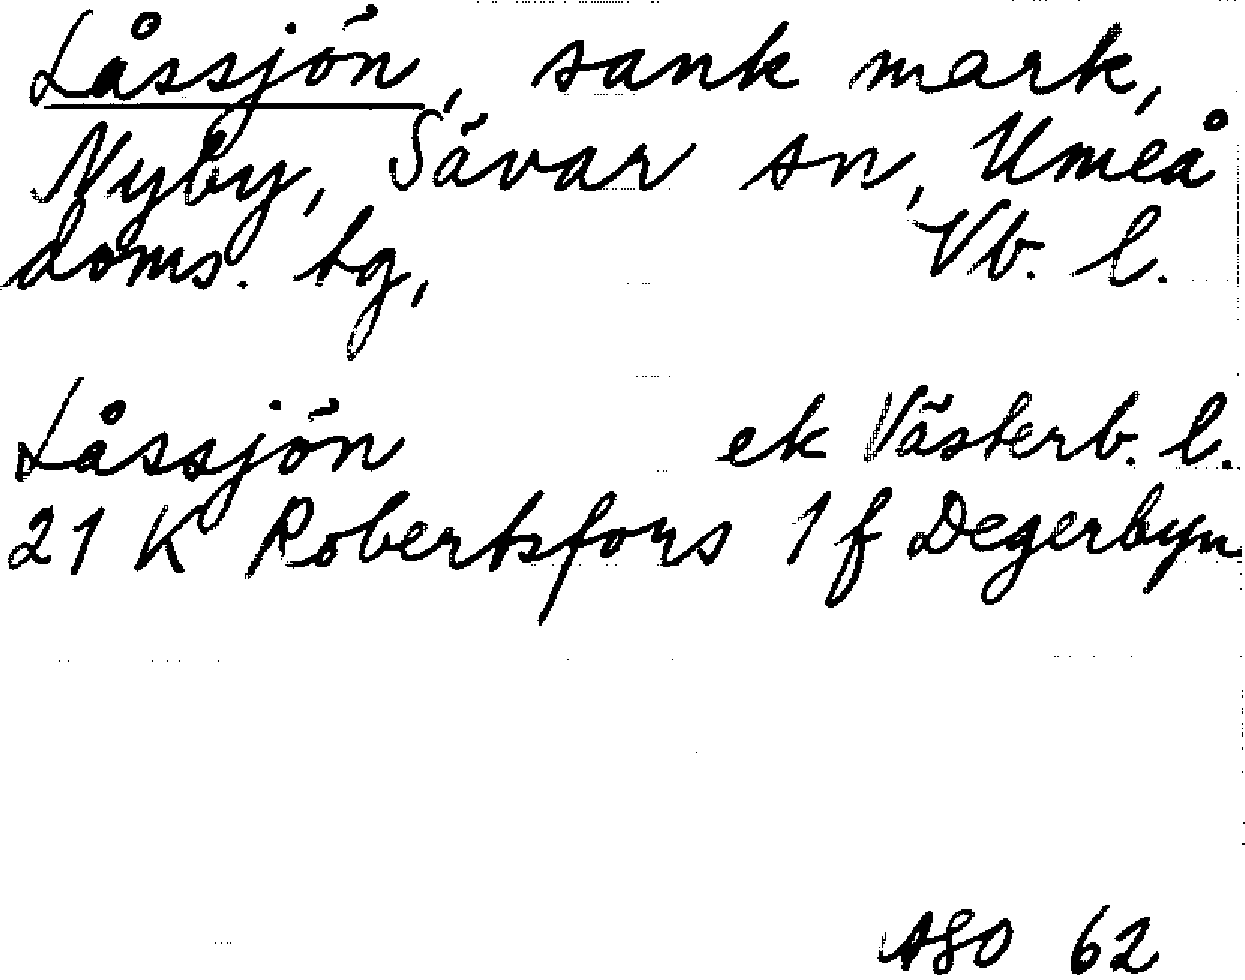 Låssjön, sank mark,
Nyby, Sävar sn, Umeå
doms. tg, Vb. l.
Låssjön ek Västerb. l.
21 K Robertsfors 1 f Degerbyn
ASO 62